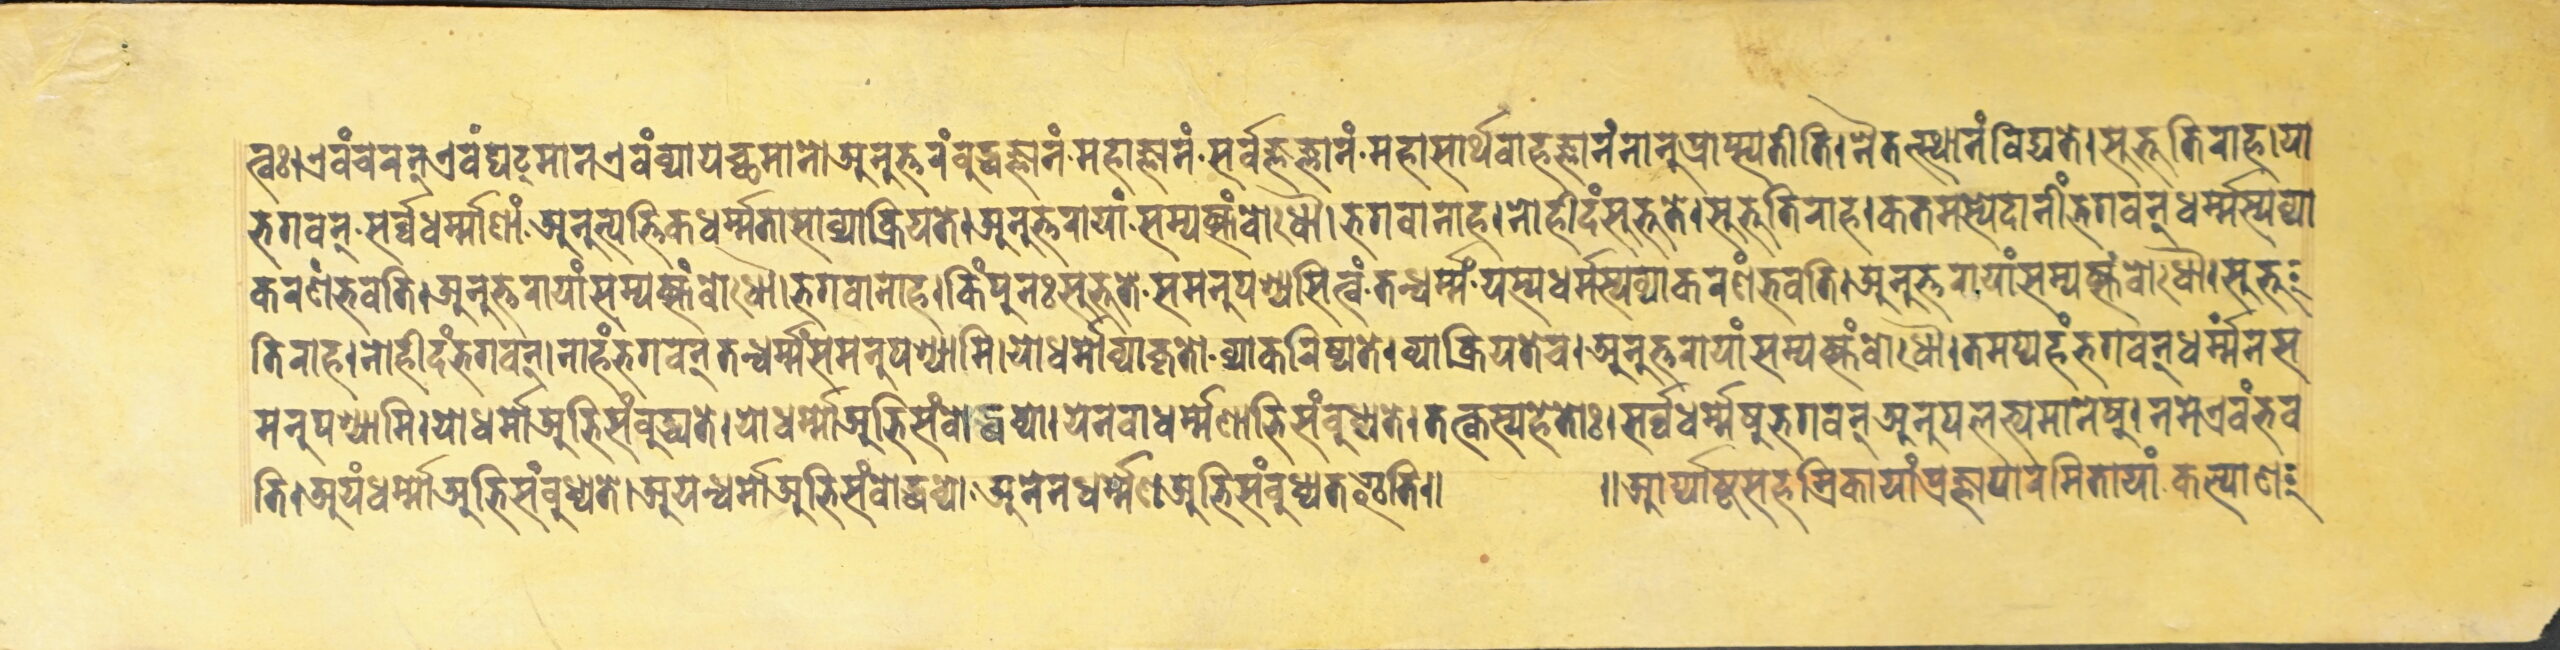 त्वः।एवंचरन्एवंघटमानएवंव्यायच्छमानोअनुत्तरंबुद्धज्ञानं·महाज्ञानं·सर्वज्ञज्ञानं·महासार्थवाहज्ञानंनानुप्राप्स्यतीति।नैतत्स्थानंविद्यते।सुभूतिराह।या
भगवन्·सर्व्वधर्म्माणां·अनुत्पत्तिकधर्म्मतासाव्याक्रियते।अनुत्तरायां·सम्यक्संबोधौ।भगवानाह।नोहीदंसुभूते।सुभूतिराह।कतमस्येदानींभगवन्धर्म्मस्यव्या
करणंभवति।अनुत्तरायांसम्यक्संबोधौ।भगवानाह।किंपुनःसुभूते·समनुपश्यसित्वं·तन्धर्म्मं·यस्यधर्मस्यव्याकरणंभवति।अनुत्तरायांसम्यक्संबोधौ।सुभू
तिराह।नोहीदंभगवन्।नाहंभगवन्तन्धर्म्मंसमनुपश्यामि।योधर्मोव्याकृतो·व्याकरिष्यते।व्याक्रियतेच।अनुत्तरायांसम्यक्संबोधौ।तमप्यहंभगवन्धर्म्मंनस
मनुपश्यामि।योधर्मोअभिसंबुध्यते।योधर्म्मोअभिसंबोद्धव्यो।येनवाधर्म्मेणाभिसंबुध्यते।तत्कस्यहेतोः।सर्व्वधर्म्मेषुभगवन्अनुपलभ्यमानेषु।नमेएवंभव
ति।अयंधर्म्मोअभिसंबुध्यते।अयन्धर्मोअभिसंबोद्धव्यो।अनेनधर्म्मेणअभिसंबुध्यतइति॥ ॥आर्य्याष्टसहस्रिकायांप्रज्ञापारमितायां·कल्याण